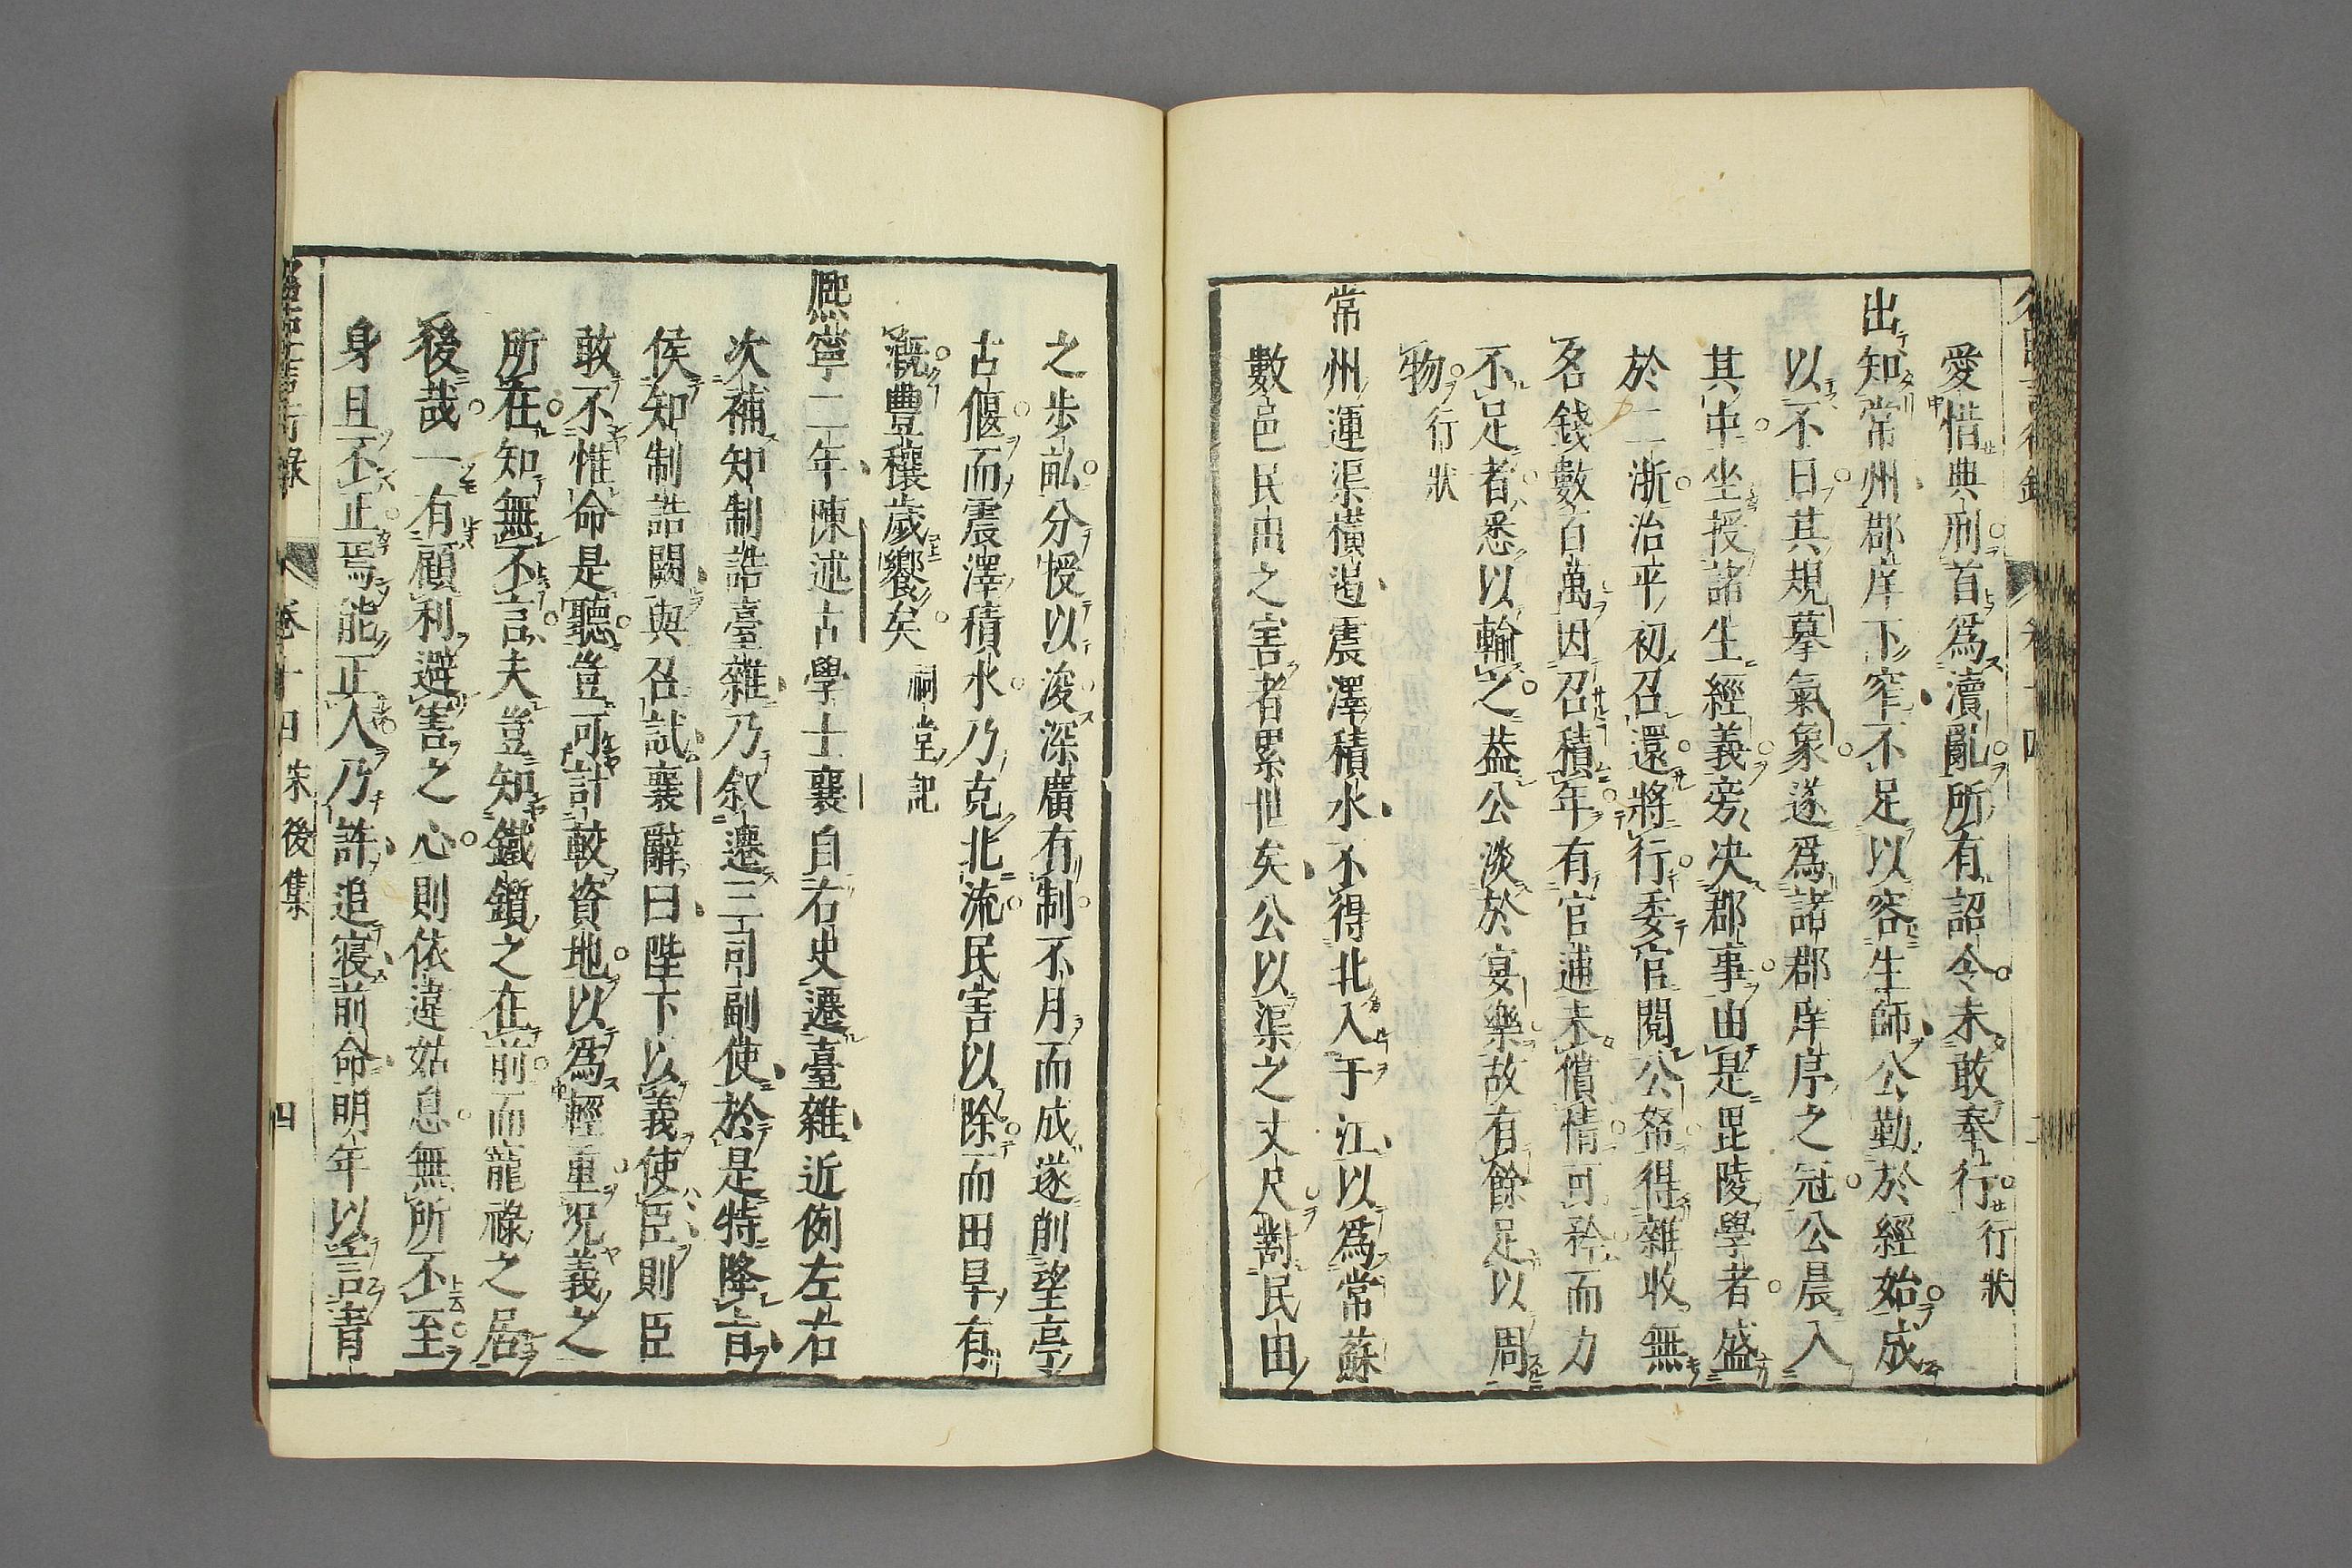 愛惜典刑首爲瀆亂所有詔令未敢奉行行狀
出知常州郡庠下窄不足以容生師公勤於經始成
以不日其規摹氣象遂爲諸郡庠序之冠公晨入
其中坐授諸生經義旁决郡事由是毘陵學者盛
於二浙治平初召還將行委官閱公帑得雜收無
名錢數百萬因召積年有官逋未償情可矜而力
不足者悉以輸之葢公淡於宴樂故有餘足以周
物行狀
常州運渠橫遏震澤積水不得北入于江以爲常蘇
數邑民田之害者累世矣公以渠之丈尺對民田
之步畝分授以浚深廣有制不月而成遂削望亭
古堰而震澤積水乃克北流民害以除而田旱有
漑豐穰歲饗矣祠堂記
熈寧二年陳述古學士襄自右史遷臺雜近例左右
次補知制誥臺雜乃叙遷三司副使於是特降旨
侯知制誥闕與召試襄辭曰陛下以義使臣則臣
敢不惟命是聽豈可計較資地以爲輕重况義之
所在知無不言夫豈知鐵鑕之在前而寵祿之居
後哉一有顧利避害之心則依違姑息無所不至
身且不正焉能正人乃許追寢前命明年以言青
卷十四 宋後集 四